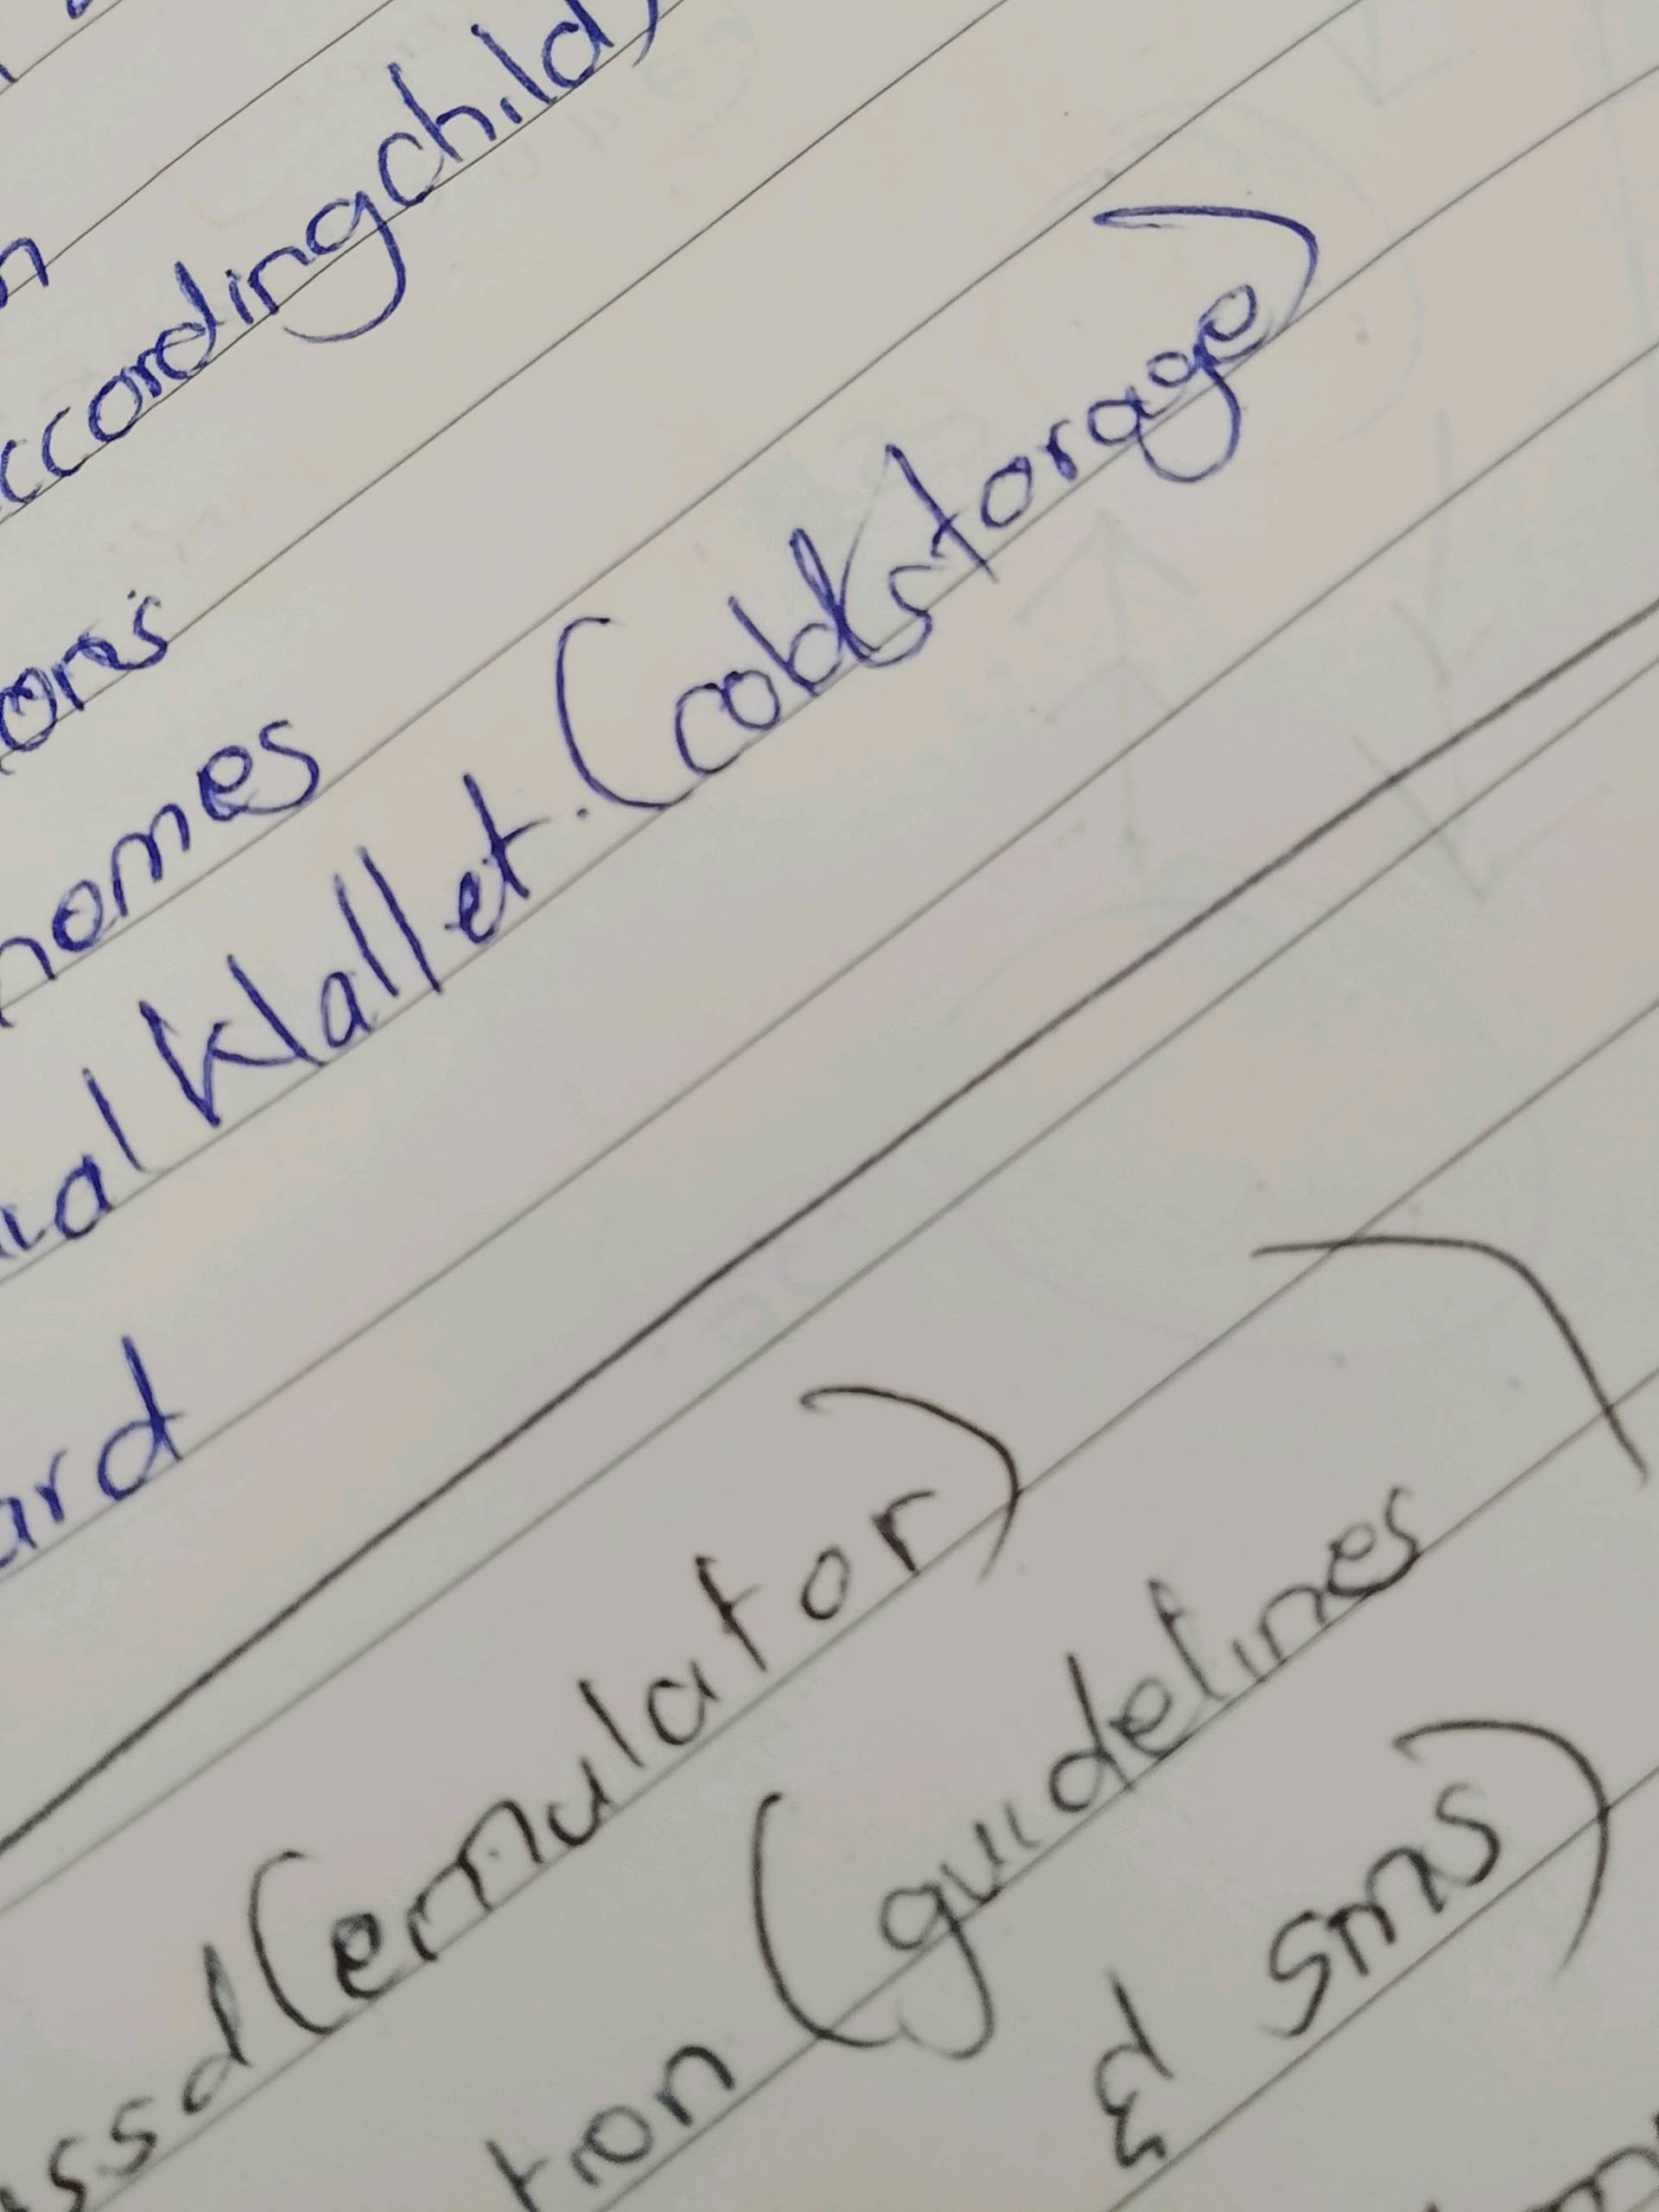 ccordingchild)
ores
homes
ual Wallet. (coldstorage)
ard
ssd(emulator)
tion (guidelines
& sms)